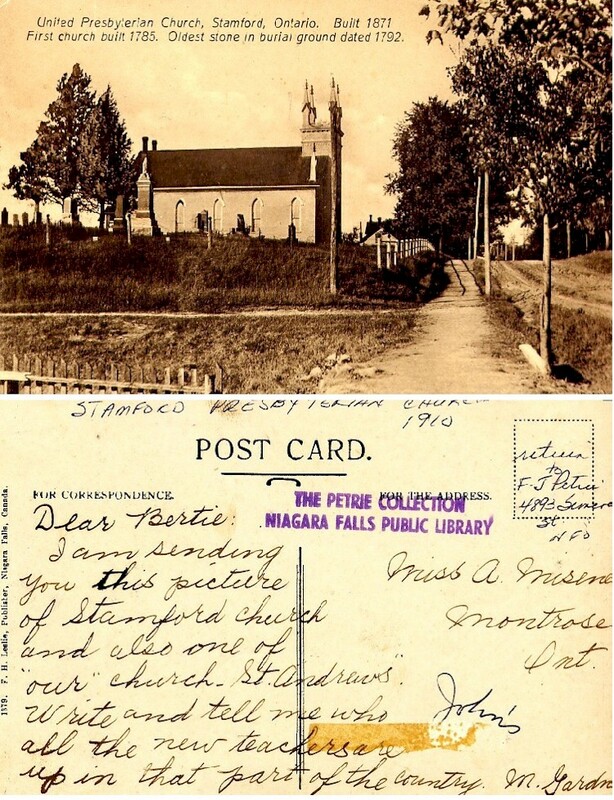 United Presbyterian Church, Stamford, Ontario. Built 1871
First church built 1785. Oldest stone in burial ground dated 1792.
STAMFORD PRESBYTERIAN CHURCH
1910
POST CARD.
FOR CORRESPONDENCE.
FOR THE ADDRESS.
THE PETRIE COLLECTION
NIAGARA FALLS PUBLIC LIBRARY
return
to
F-J Petrie
4893 Simcoe
St
NFO
Dear Bertie:
I am sending
you this picture
of Stamford church
and also one of
"our" church - St. Andrews".
Write and tell me who
all the new teachers are
up in that part of the country. M. Gardn
Miss A. Misene
Montrose
Ont.
John's
1379. F. H. Leslie, Publisher, Niagara Falls, Canada.